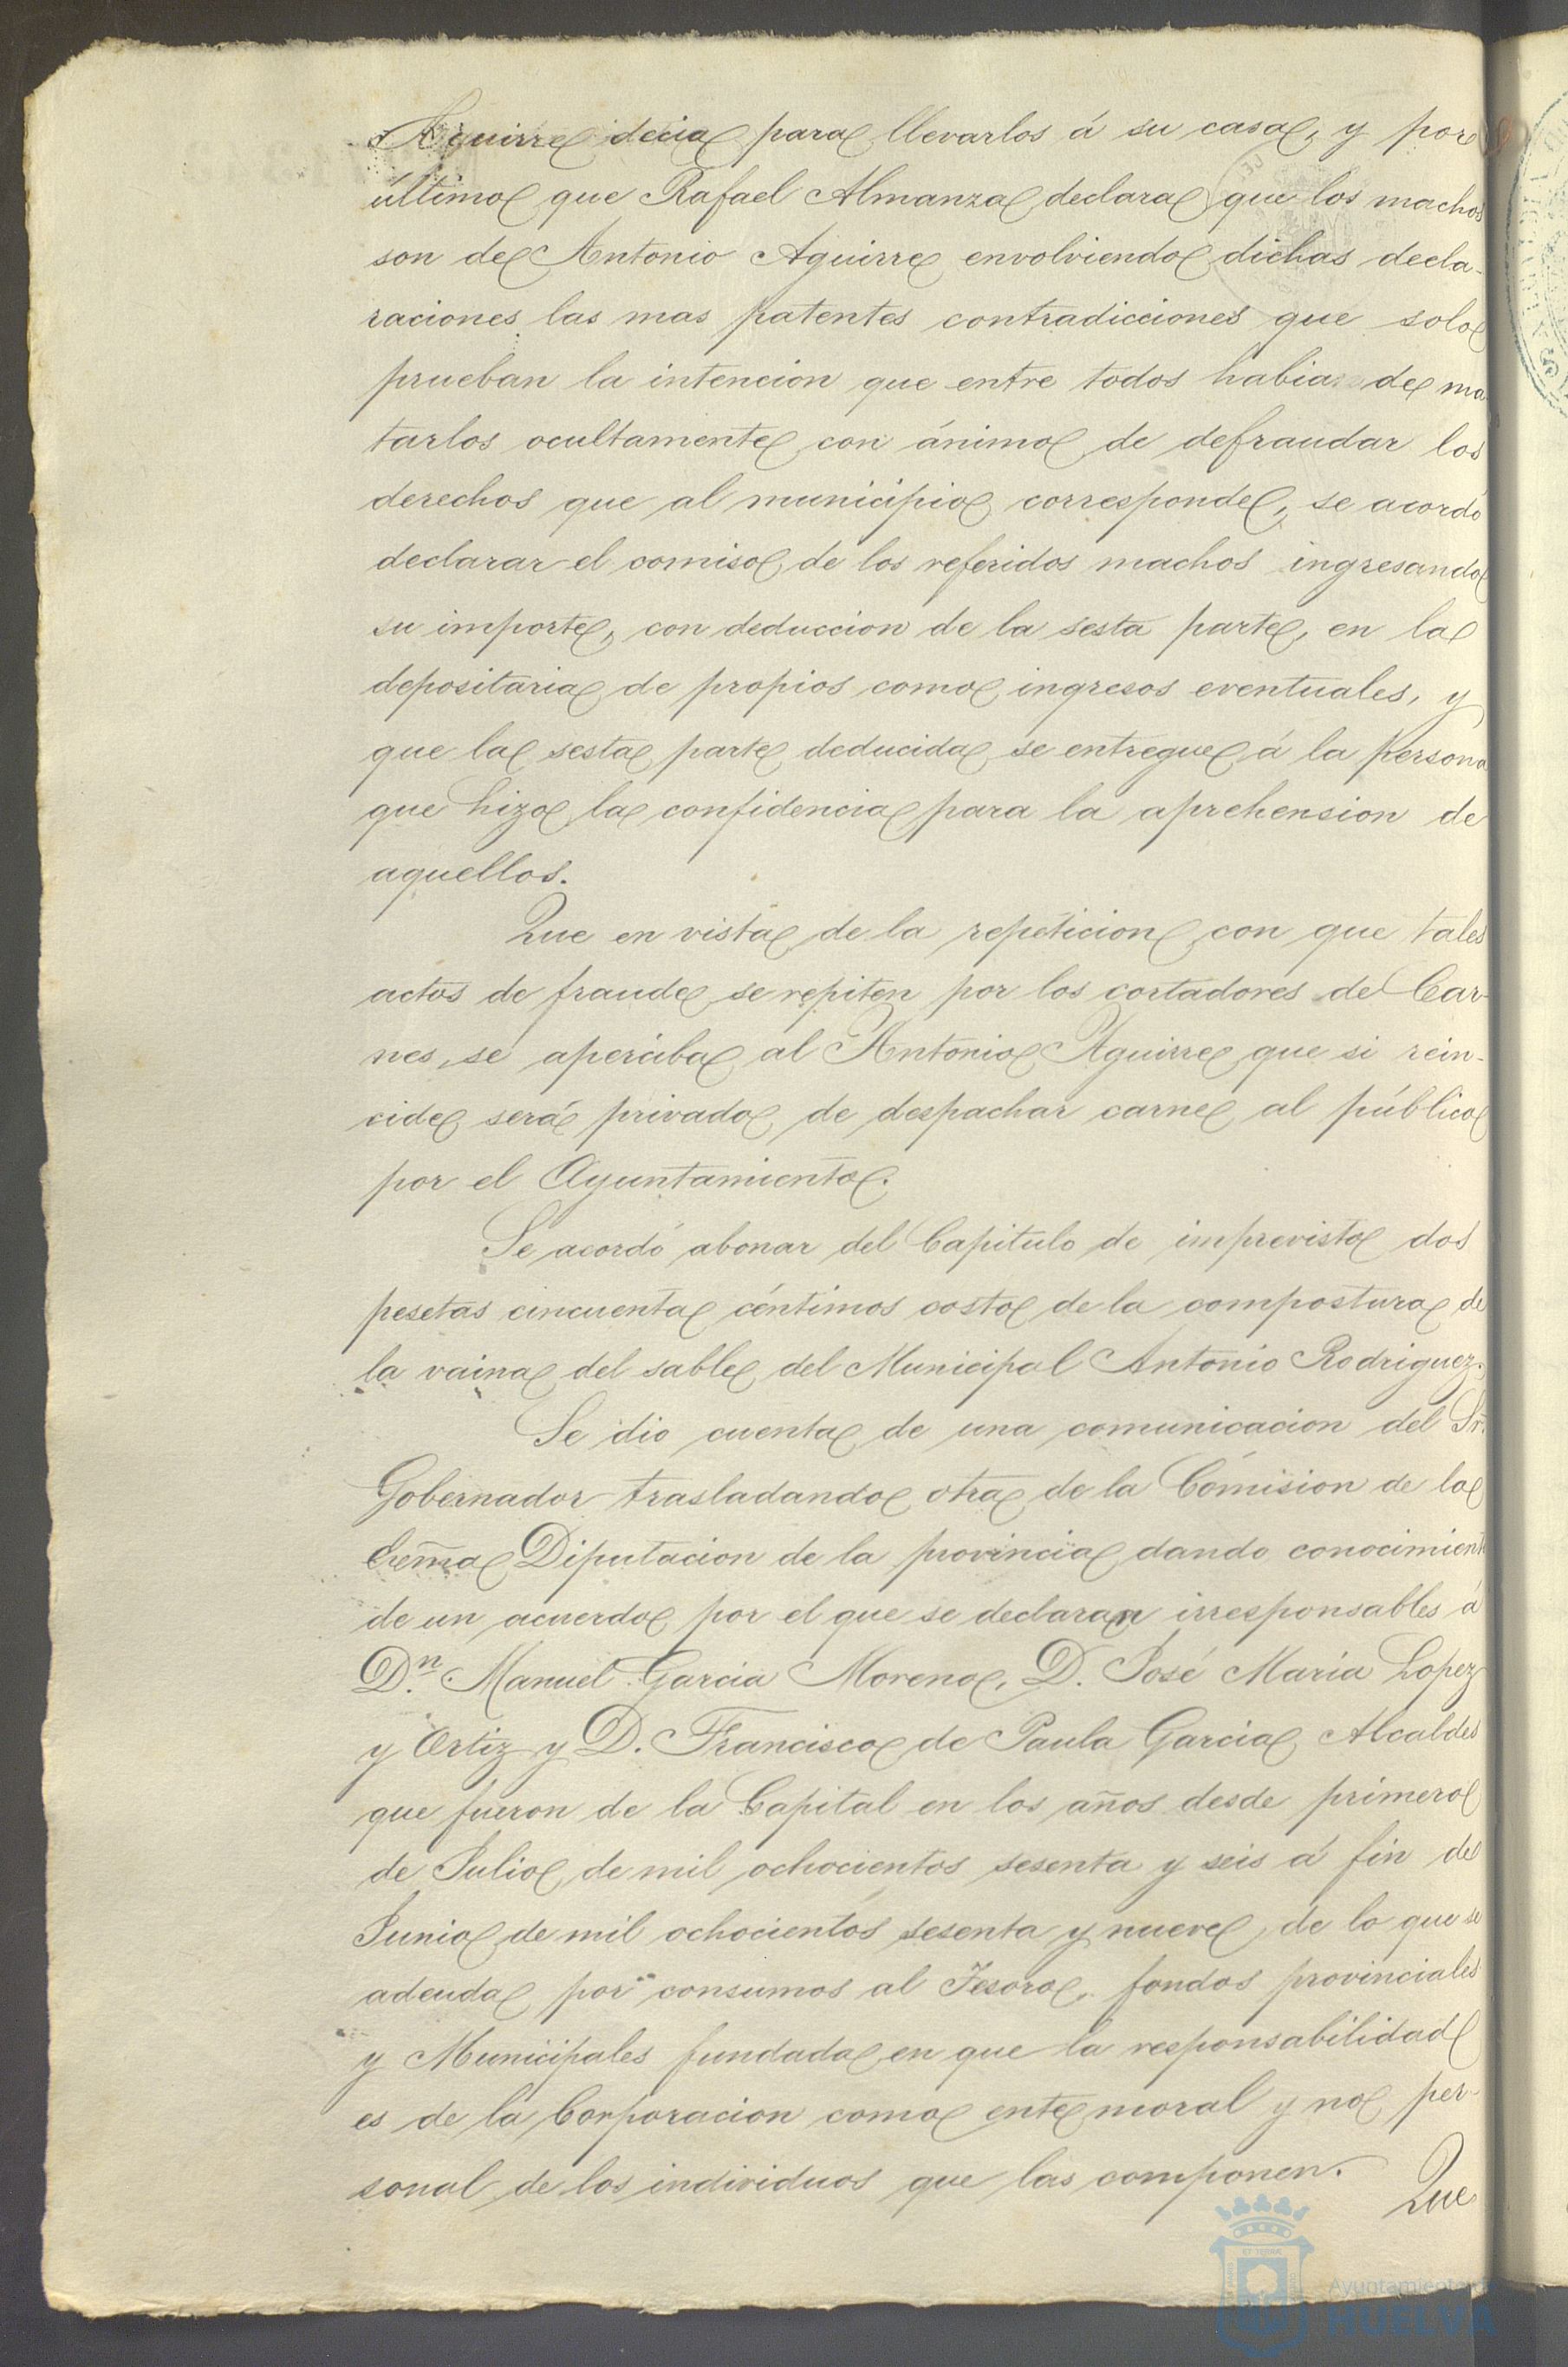 Aguirre decia para llevarlos á su casa, y por
último que Rafael Almanza declara que los machos
son de Antonio Aguirre envolviendo dichas decla-
raciones las mas patentes contradicciones que solo
prueban la intencion que entre todos habia de ma
tarlos ocultamente con ánimo de defraudar los
derechos que al municipio corresponde, se acordó
declarar el comiso de los referidos machos ingresando
su importe, con deduccion de la sesta parte, en la
depositaria de propios como ingresos eventuales, y
que la sesta parte deducida se entregue á la persona
que hizo la confidencia para la aprehension de
aquellos.
Que en vista de la repeticion con que tales
actos de fraude se repiten por los cortadores de Car-
nes, se aperciba al Antonio Aguirre que si rein-
cide será privado de despachar carne al público
por el Ayuntamiento.
Se acordó abonar del Capitulo de imprevisto dos
pesetas cincuenta céntimos costo de la compostura de
la vaina del sable del Municipal Antonio Rodriguez.
Se dio cuenta de una comunicacion del Sr.
Gobernador trasladando otra de la Comision de la
Exma Diputacion de la provincia dando conocimient
de un acuerdo por el que se declaran irresponsables á
Dn. Manuel Garcia Moreno, D. José Maria Lopez
y Ortiz y D. Francisco de Paula Garcia Alcaldes
que fueron de la Capital en los años desde primero
de Julio de mil ochocientos sesenta y seis á fin de
Junio de mil ochocientos sesenta y nueve, de lo que se
adeuda por consumos al Tesoro, fondos provinciales
y Municipales fundada en que la responsabilidad
es de la Corporacion como ente moral y no per-
sonal de los individuos que las componen.
Que
Ayuntamiento de
HUELVA